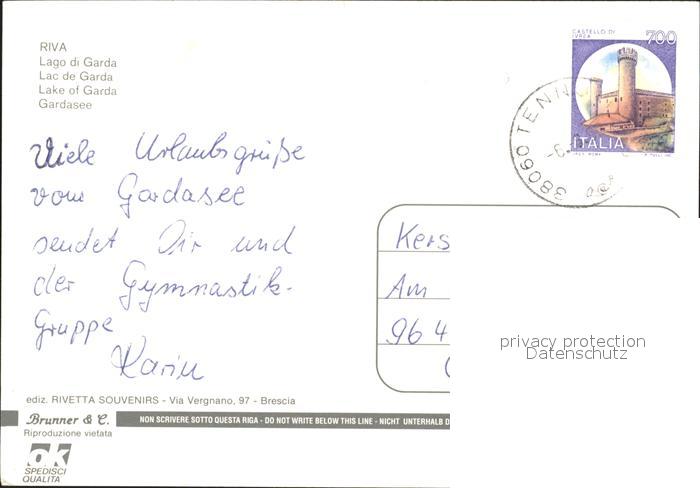 RIVA
Lago di Garda
Lac de Garda
Lake of Garda
Gardasee
CASTELLO DI IVREA
700
ITALIA
38060 TENN
-6.
Viele Urlaubsgrüße
vom Gardasee
sendet Dir und
der Gymnastik-
Gruppe
Karin
Kers
Am
96 4
privacy protection
Datenschutz
ediz. RIVETTA SOUVENIRS - Via Vergnano, 97 - Brescia
Brunner & C.
NON SCRIVERE SOTTO QUESTA RIGA - DO NOT WRITE BELOW THIS LINE - NICHT UNTERHALB D
Riproduzione vietata
ok
SPEDISCI
QUALITÀ